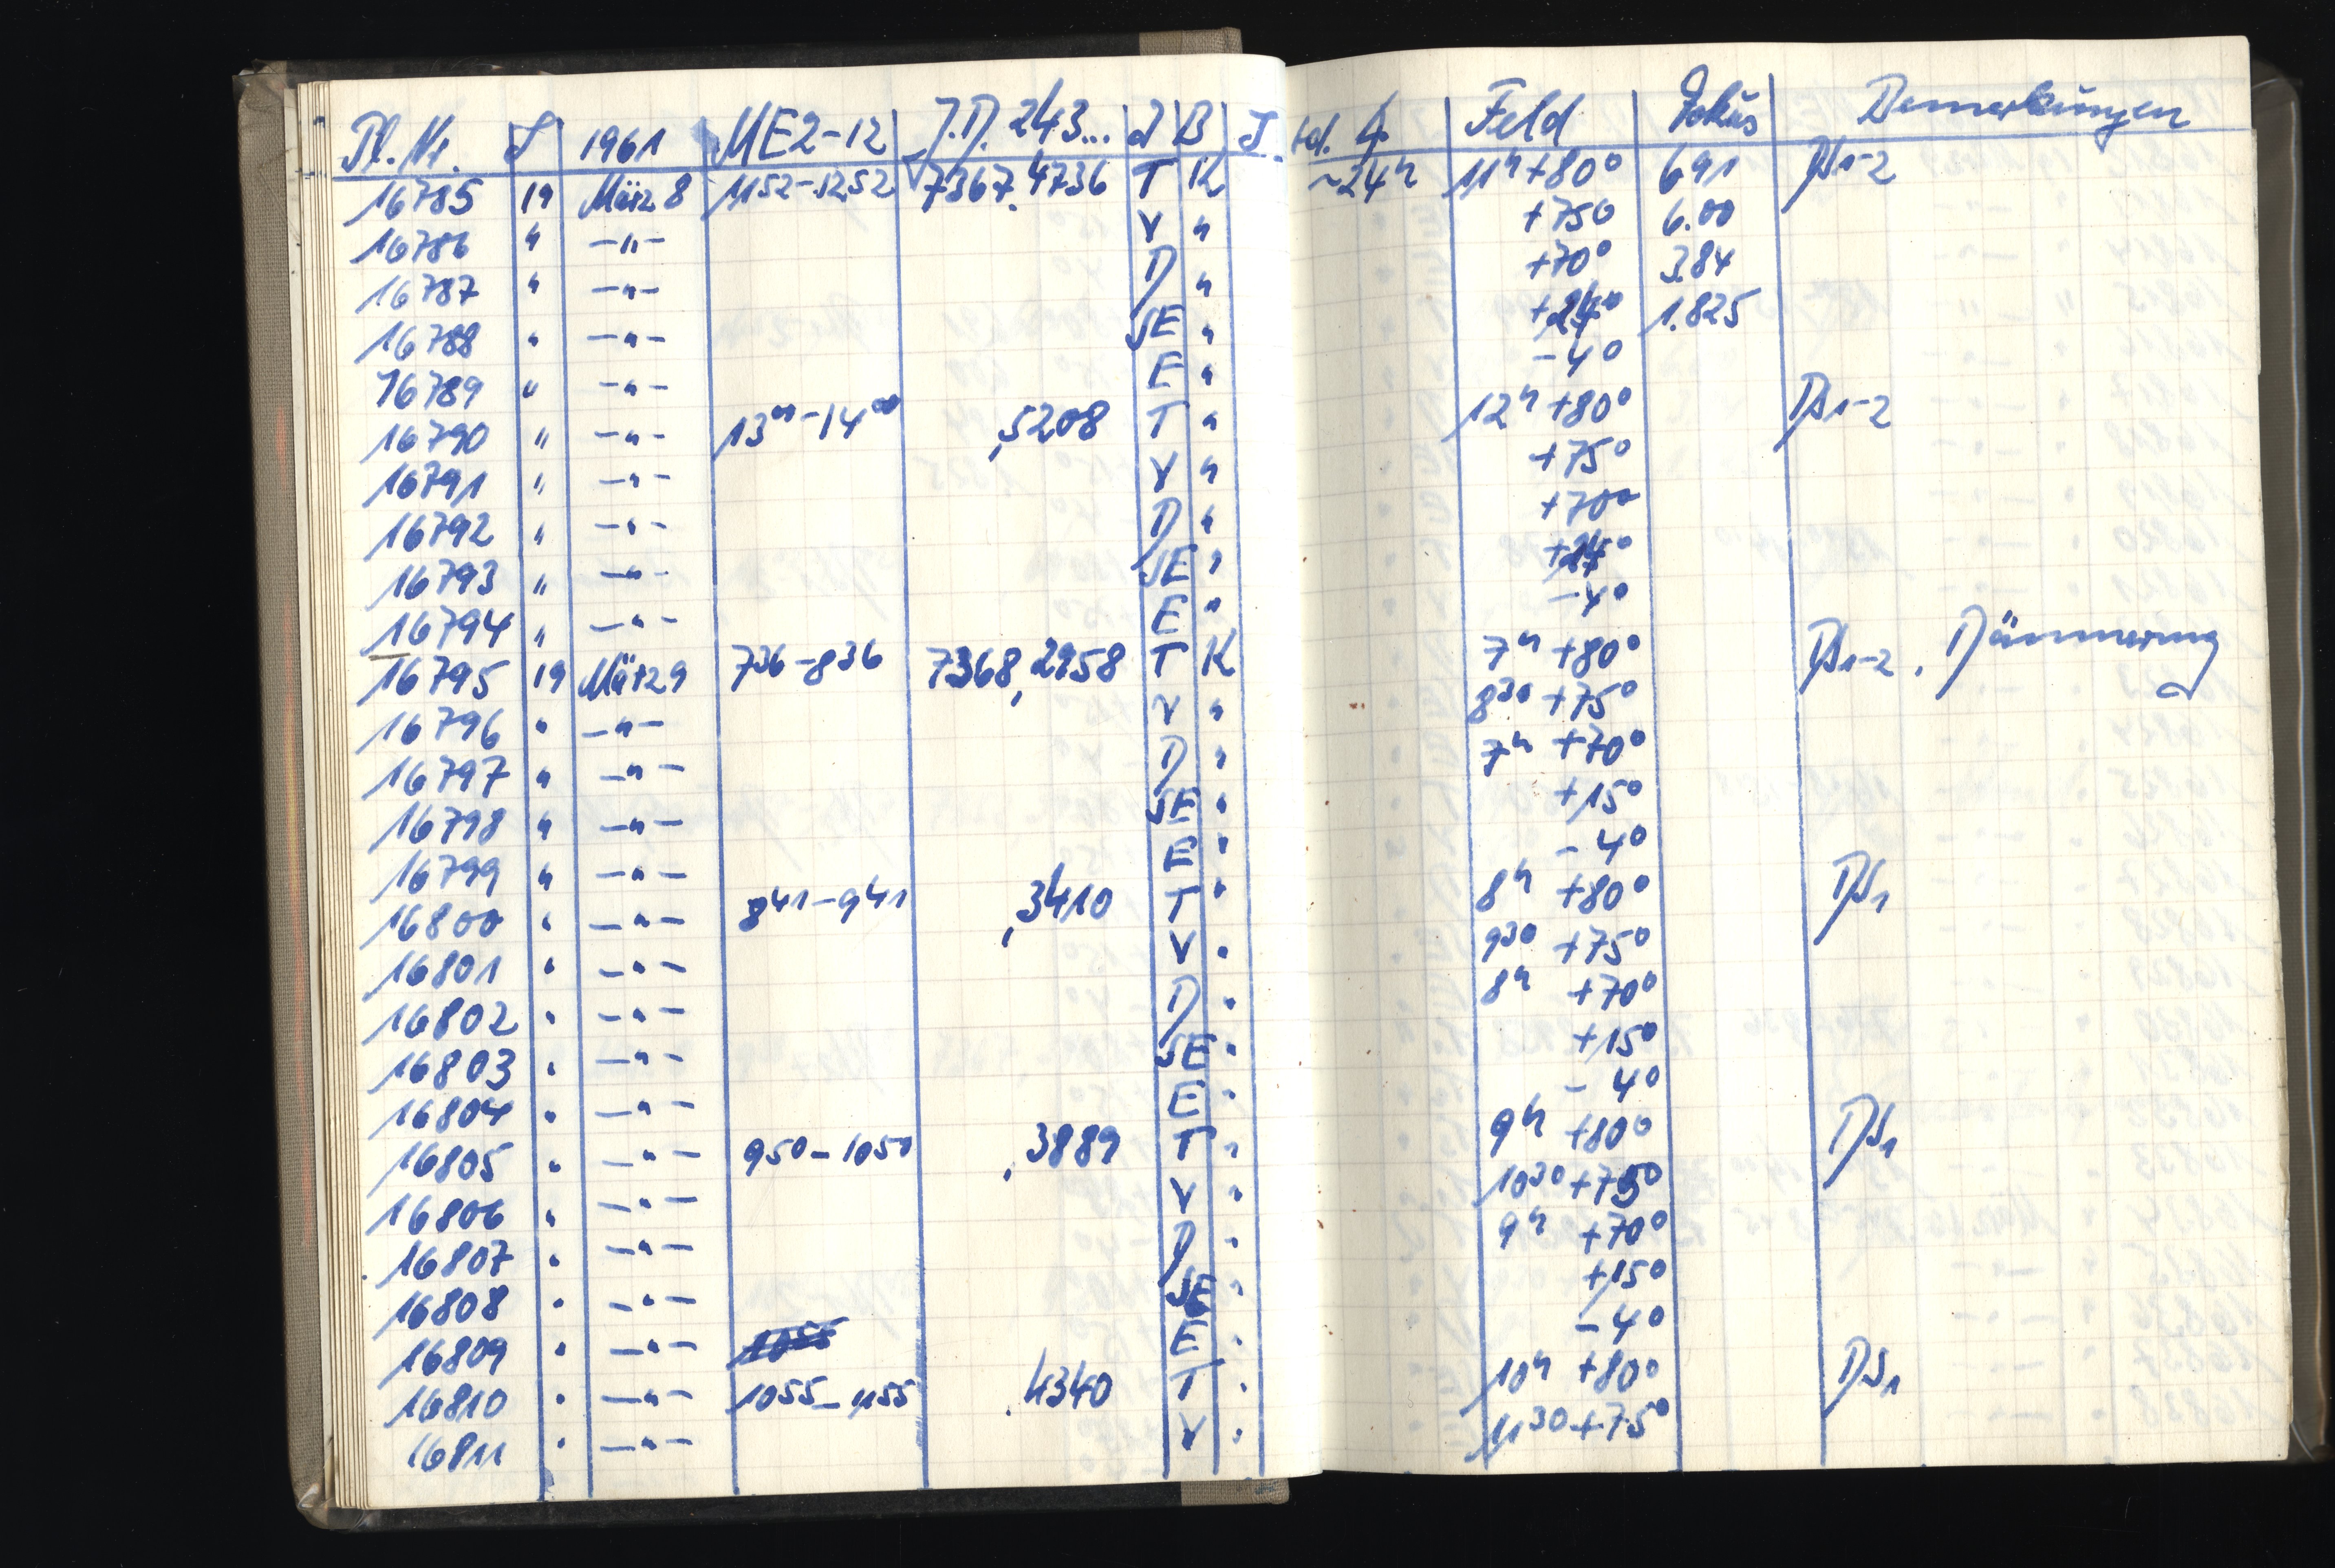 Pl. Nr. S 1961 ME2-12 J.D. 243... J B J. td. A Feld Fokus Bemerkungen
16785 19 März 8 11 52 - 12 52 7367.4736 T K ~24h 11h +80° 6.91 DS1-2
16786 " -"- V " +75° 6.00
16787 " -"- D " +70° 3.84
16788 " -"- SE " 1.825
16789 " -"- E " -4°
16790 " -"- 13 00 - 14 00 ,5208 T " 12h +80° DS1-2
16791 " -"- V " +75°
16792 " -"- D " +70°
16793 " -"- SE "
16794 " -"- E " -4°
16795 19 März 9 7 36 - 8 36 7368,2958 T K 7h +80° DS1-2, Dämmerung
16796 " -"- V " 8 30 +75°
16797 " -"- D " 7h +70°
16798 " -"- SE " +15°
16799 " -"- E " -4°
16800 " -"- 8 41 - 9 41 ,3410 T " 8h +80° DS1
16801 " -"- V " 9 30 +75°
16802 " -"- D " 8h +70°
16803 " -"- SE " +15°
16804 " -"- E " -4°
16805 " -"- 9 50 - 10 50 ,3889 T " 9h +80° DS1
16806 " -"- V " 10 30 +75°
16807 " -"- D " 9h +70°
16808 " -"- SE " +15°
16809 " -"- 10 55 E " -4°
16810 " -"- 10 55 - 11 55 .4340 T " 10h +80° DS1
16811 " -"- V " 11 30 +75°